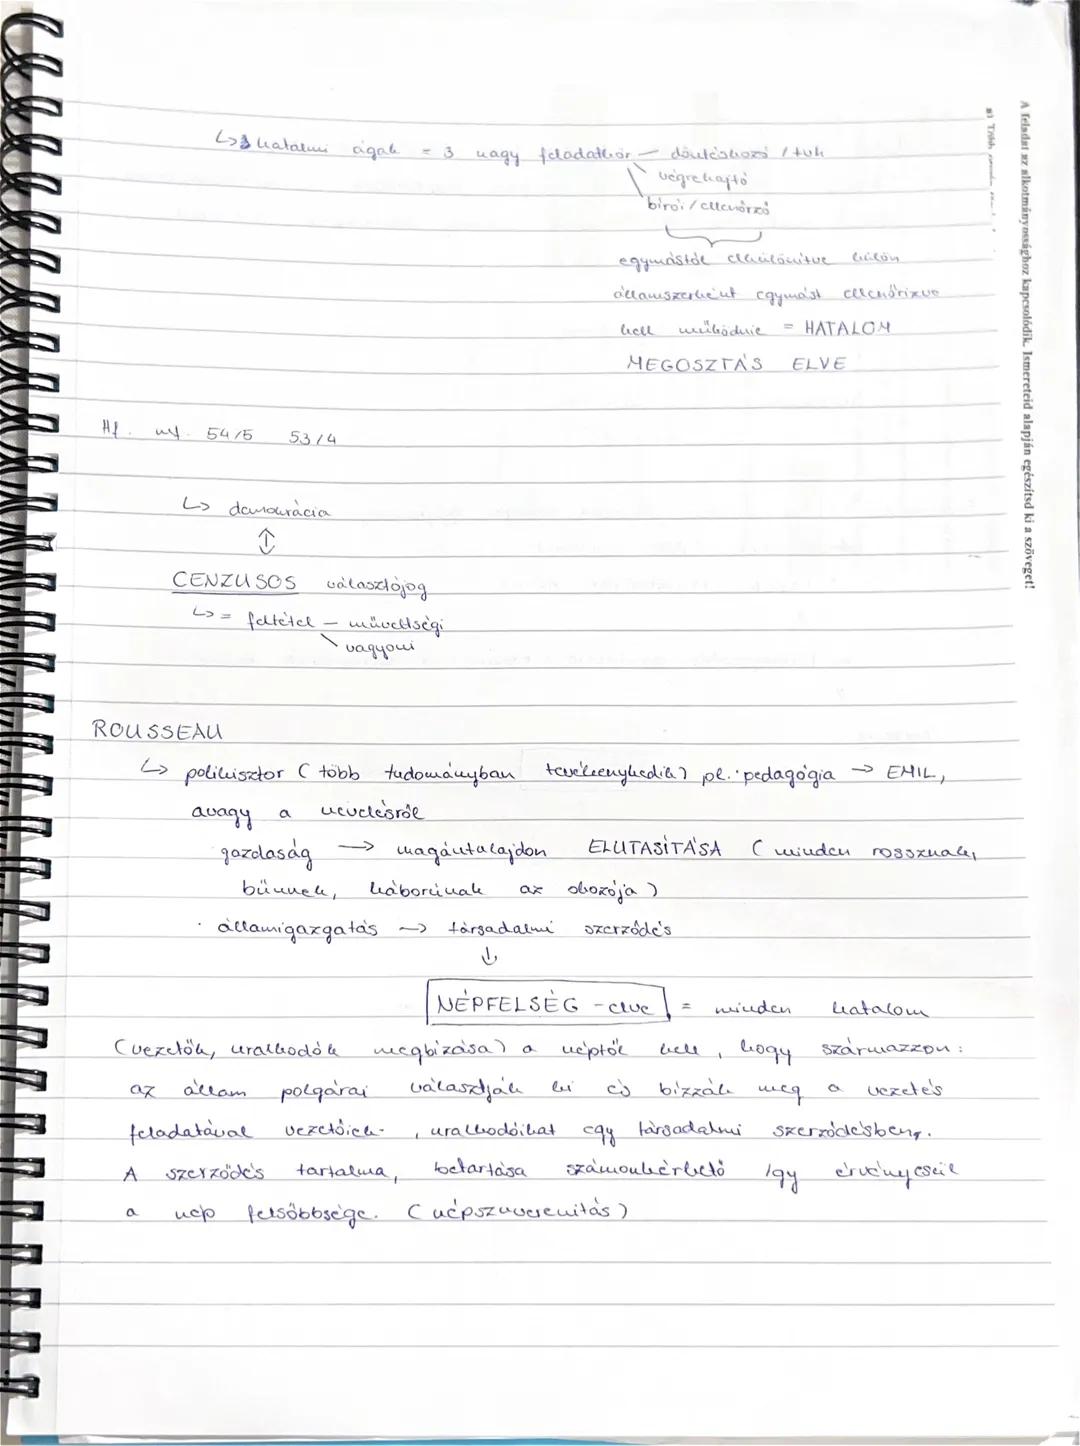 ↳ 3 hatalmi ágak = 3 nagy feladatkör — döntéshozó /tvh
végrehajtó
bírói/ellenőrző
egymástól elkülönítve külön
államszerként egymást ellenőrizve
kell működnie = HATALOM
MEGOSZTÁS ELVE
Hf. mf. 54/5 53/4
↳ demokrácia
↕
CENZUSOS választójog
↳ = feltétel — műveltségi
vagyoni
ROUSSEAU
↳ polihisztor (több tudományban tevékenykedik) pl.: pedagógia → EMIL,
avagy a nevelésről
gazdaság → magántulajdon ELUTASÍTÁSA (minden rossznak,
bűnnek, háborúnak az okozója)
· államigazgatás → társadalmi szerződés
↓
NÉPFELSÉG -elve = minden hatalom
(vezetők, uralkodók megbízása) a néptől kell, hogy származzon:
az állam polgárai választják ki és bízzák meg a vezetés
feladatával vezetőik-, uralkodóikat egy társadalmi szerződésben.
A szerződés tartalma, betartása számonkérhető így érvényesül
a nép felsőbbsége. (népszuverenitás)
A feladat az alkotmányossághoz kapcsolódik. Ismereteid alapján egészítsd ki a szöveget!
a) Több